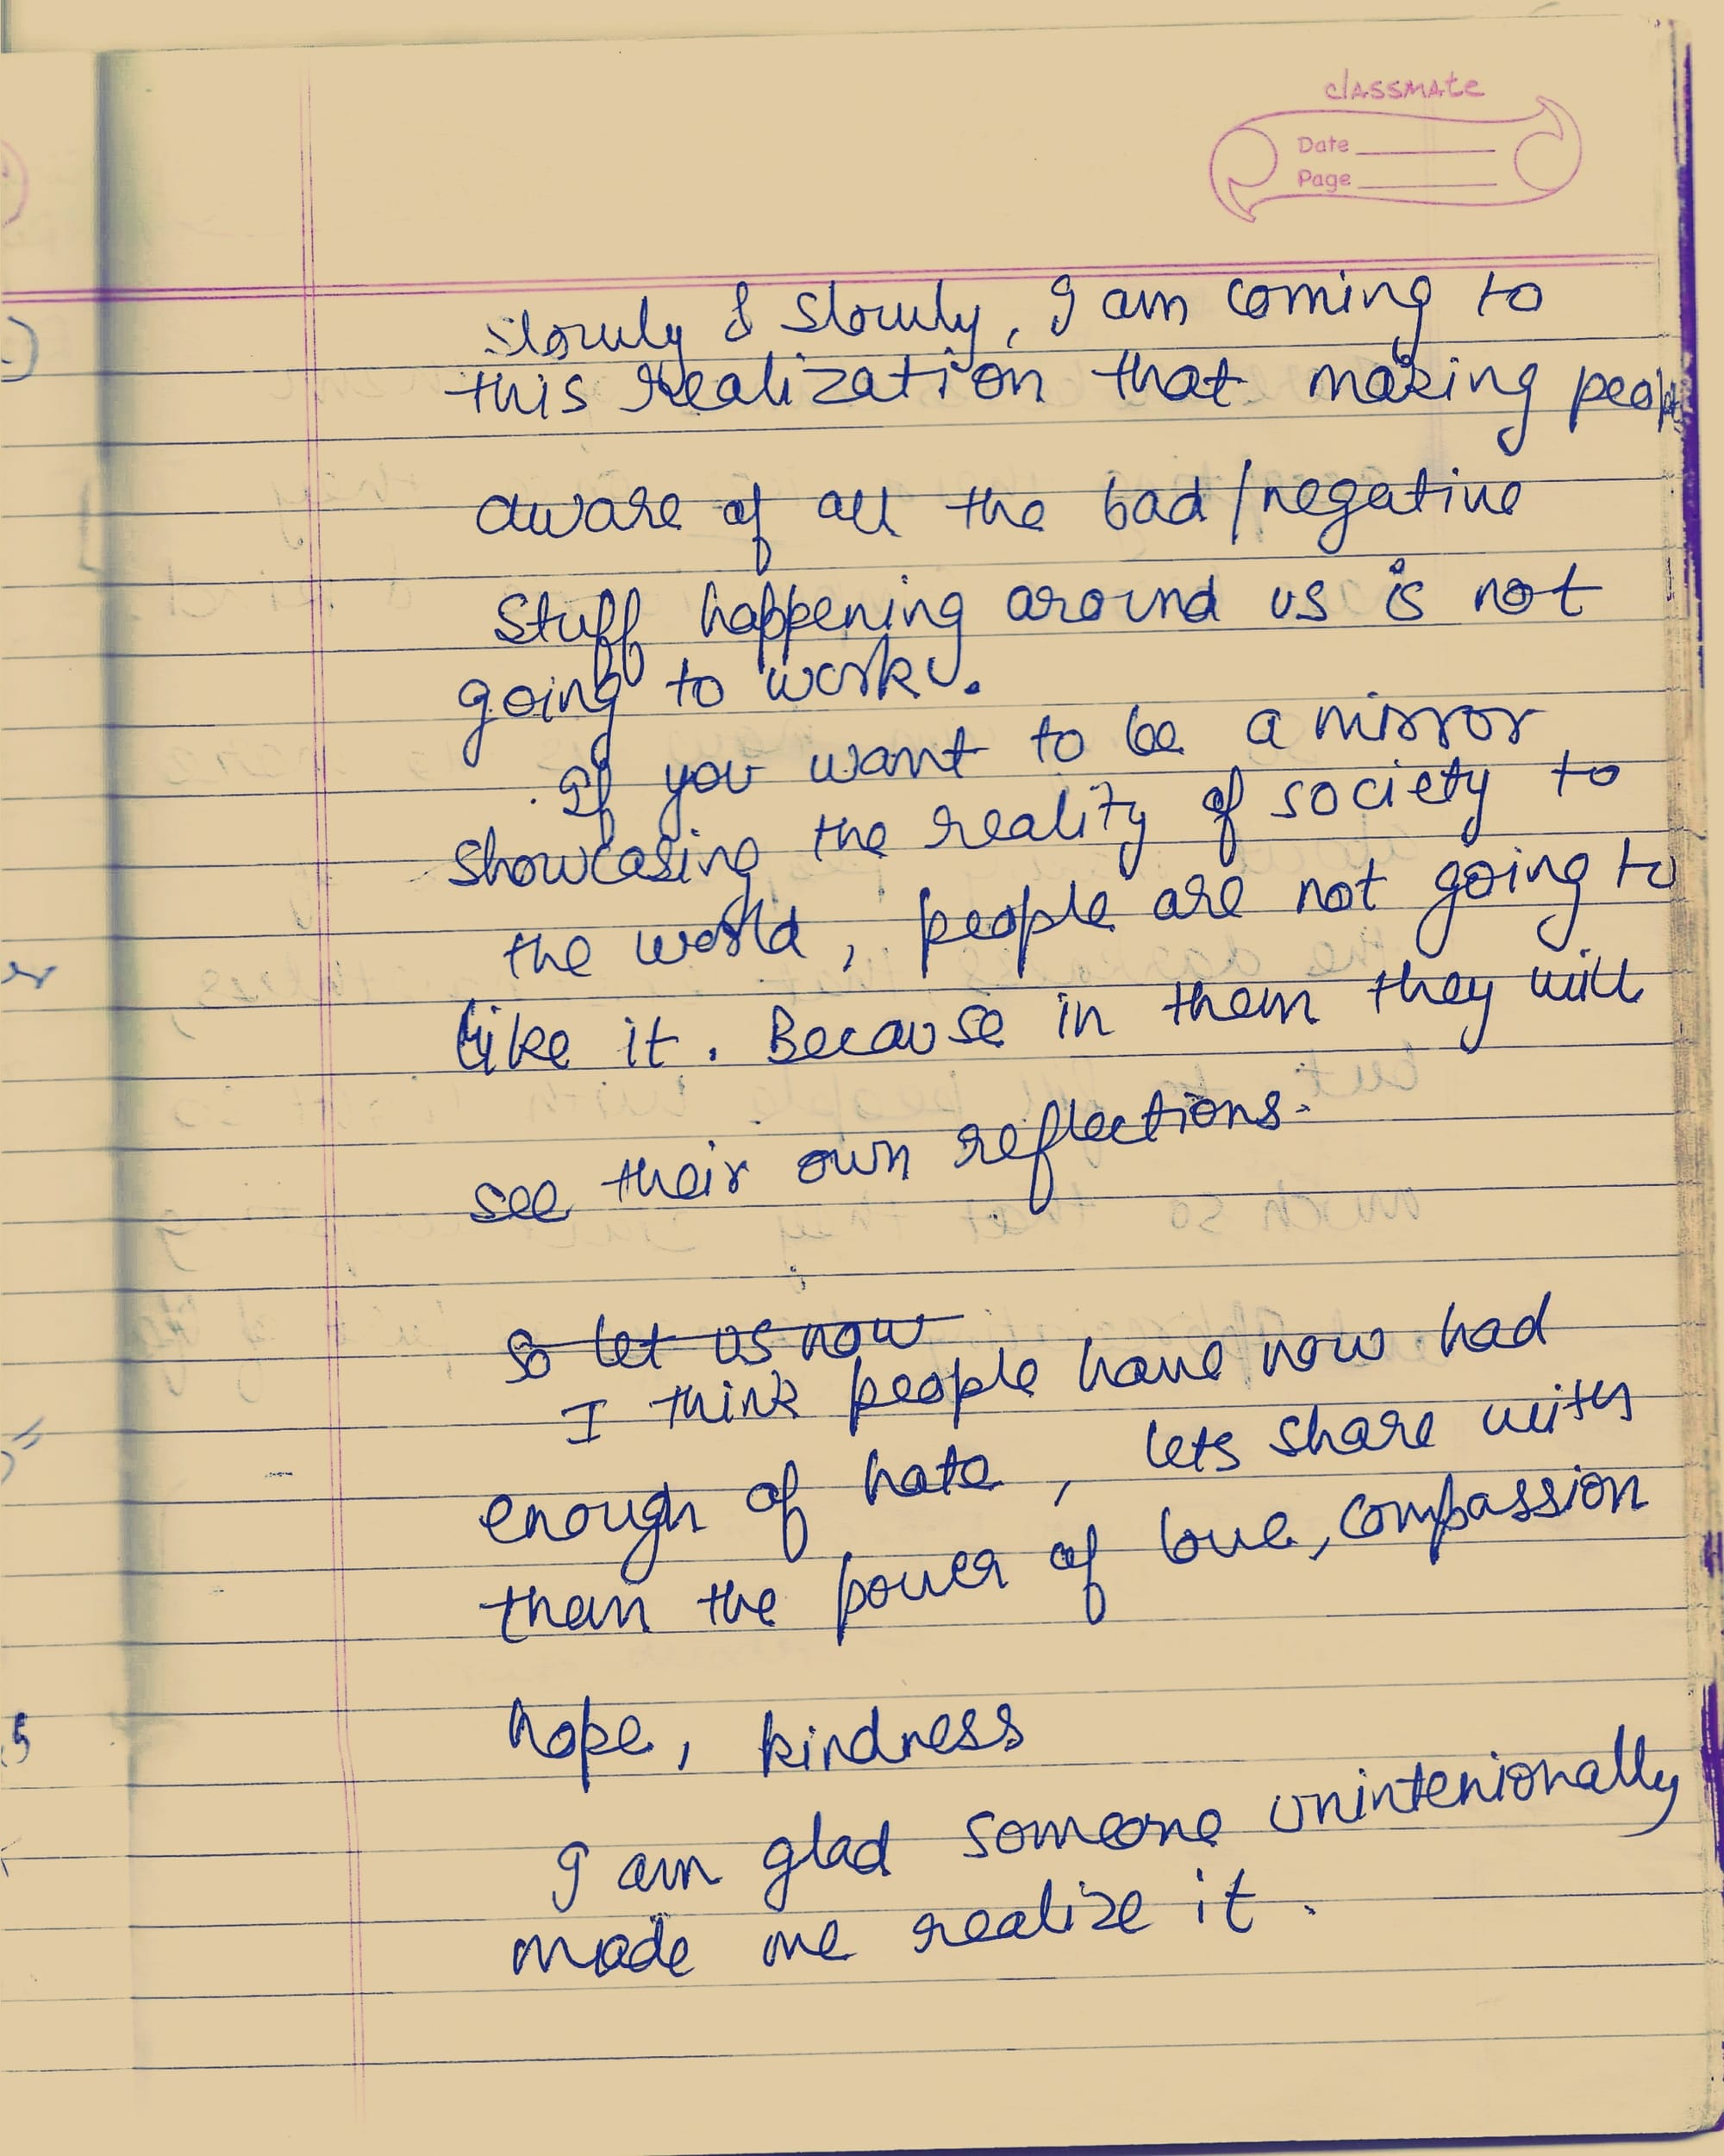 classmate
Date
Page
Slowly & Slowly, I am coming to
this realization that making peopl
aware of all the bad/negative
Stuff happening around us is not
going to work.
If you want to be a mirror
showcasing the reality of society to
the world, people are not going to
like it. Because in them they will
see their own reflections.
So let us now
I think people have now had
enough of hate, lets share with
them the power of love, compassion
hope, kindness
I am glad someone unintenionally
made me realize it.